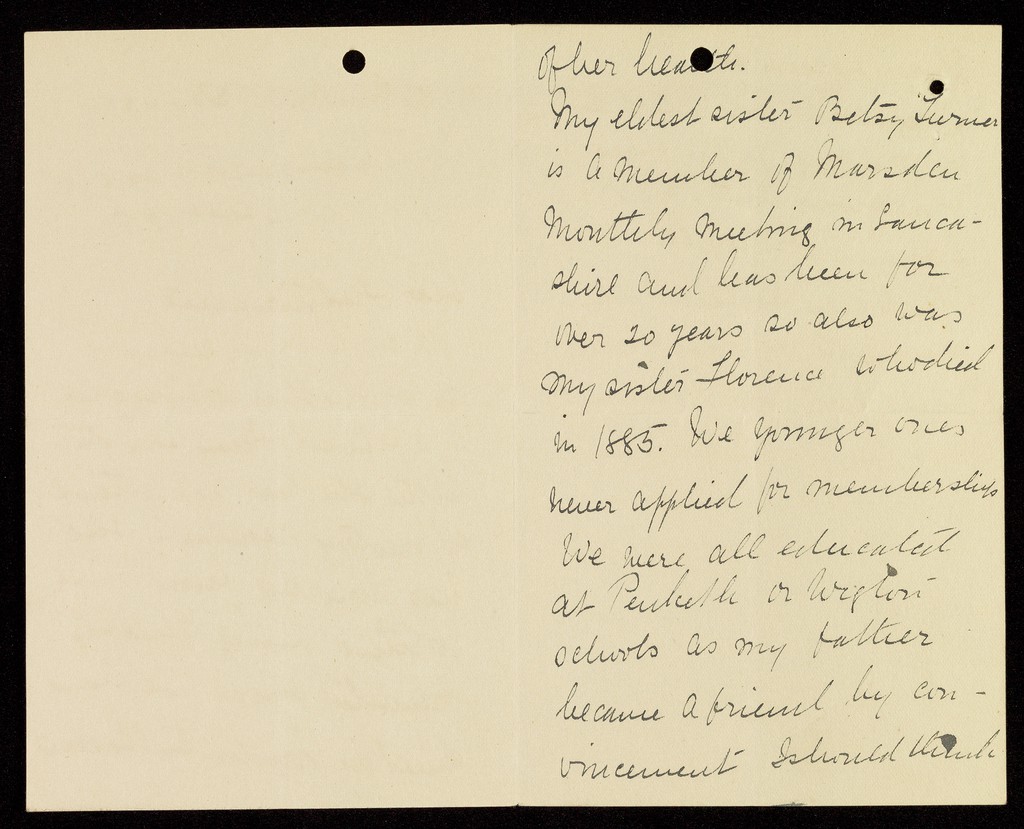 of her health.
My eldest sister Betsy Turner
is a member of Marsden
Monthly Meeting in Lanca-
shire and has been for
over 20 years so also was
my sister Florence who died
in 1885. We younger ones
never applied for membership
We were all educated
at Penketh or Wigton
schools as my father
became a friend by con-
vincement I should think